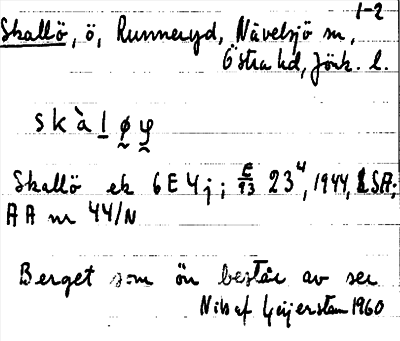 1-2
Skallö, ö, Runneryd, Nävelsjö sn,
Östra hd, Jönk. l.
skàl ø y
Skallö ek 6E4j; E/93 23⁴, 1944, LSA;
AA nr 44/N
Berget som ön består av ser
Nils af Geijerstam 1960